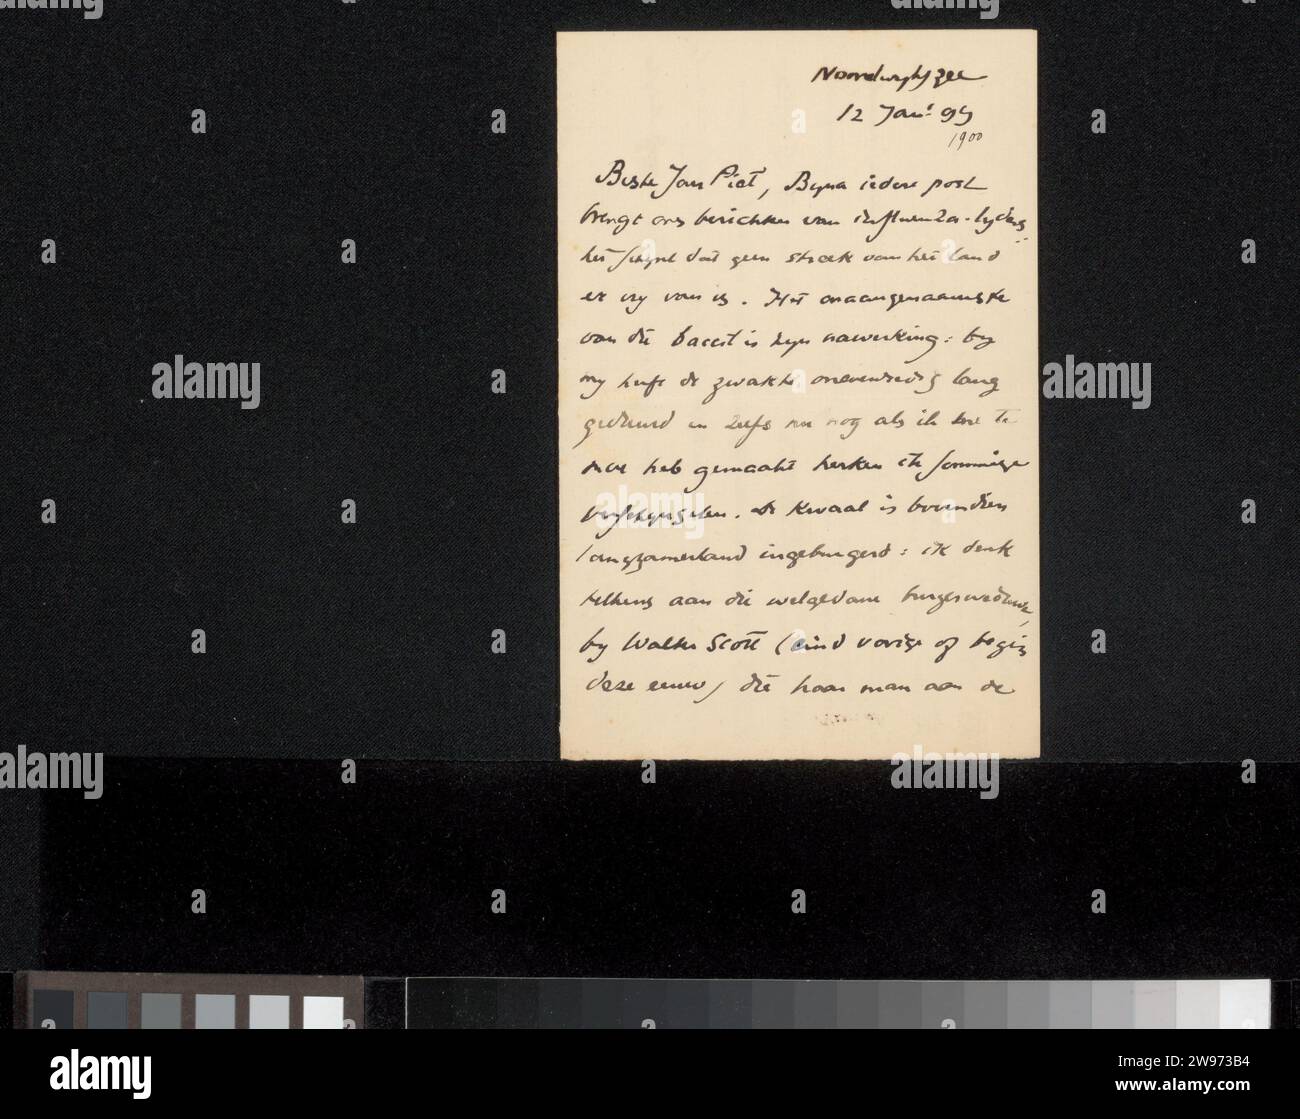 Noordwijk/zee
12 Jan! 99
1900
Beste Jan Piet, Byna iedere post
brengt ons berichten van influenza-lyders
het schynt dat geen streek van het land
er vry van is. Het onaangenaamste
van die bacil is zyn nawerking: by
my heeft de zwakte onevenredig lang
geduurd en zelfs nu nog als ik me te
moe heb gemaakt herken ik sommige
verschynselen. De Kwaal is bovendien
langzamerhand ingeburgerd: ik denk
telkens aan die welgedane burgers
by Walter Scott (eind vorige of begin
deze eeuw) die haar man aan de
alamy
Image ID: 2W973B4
www.alamy.com